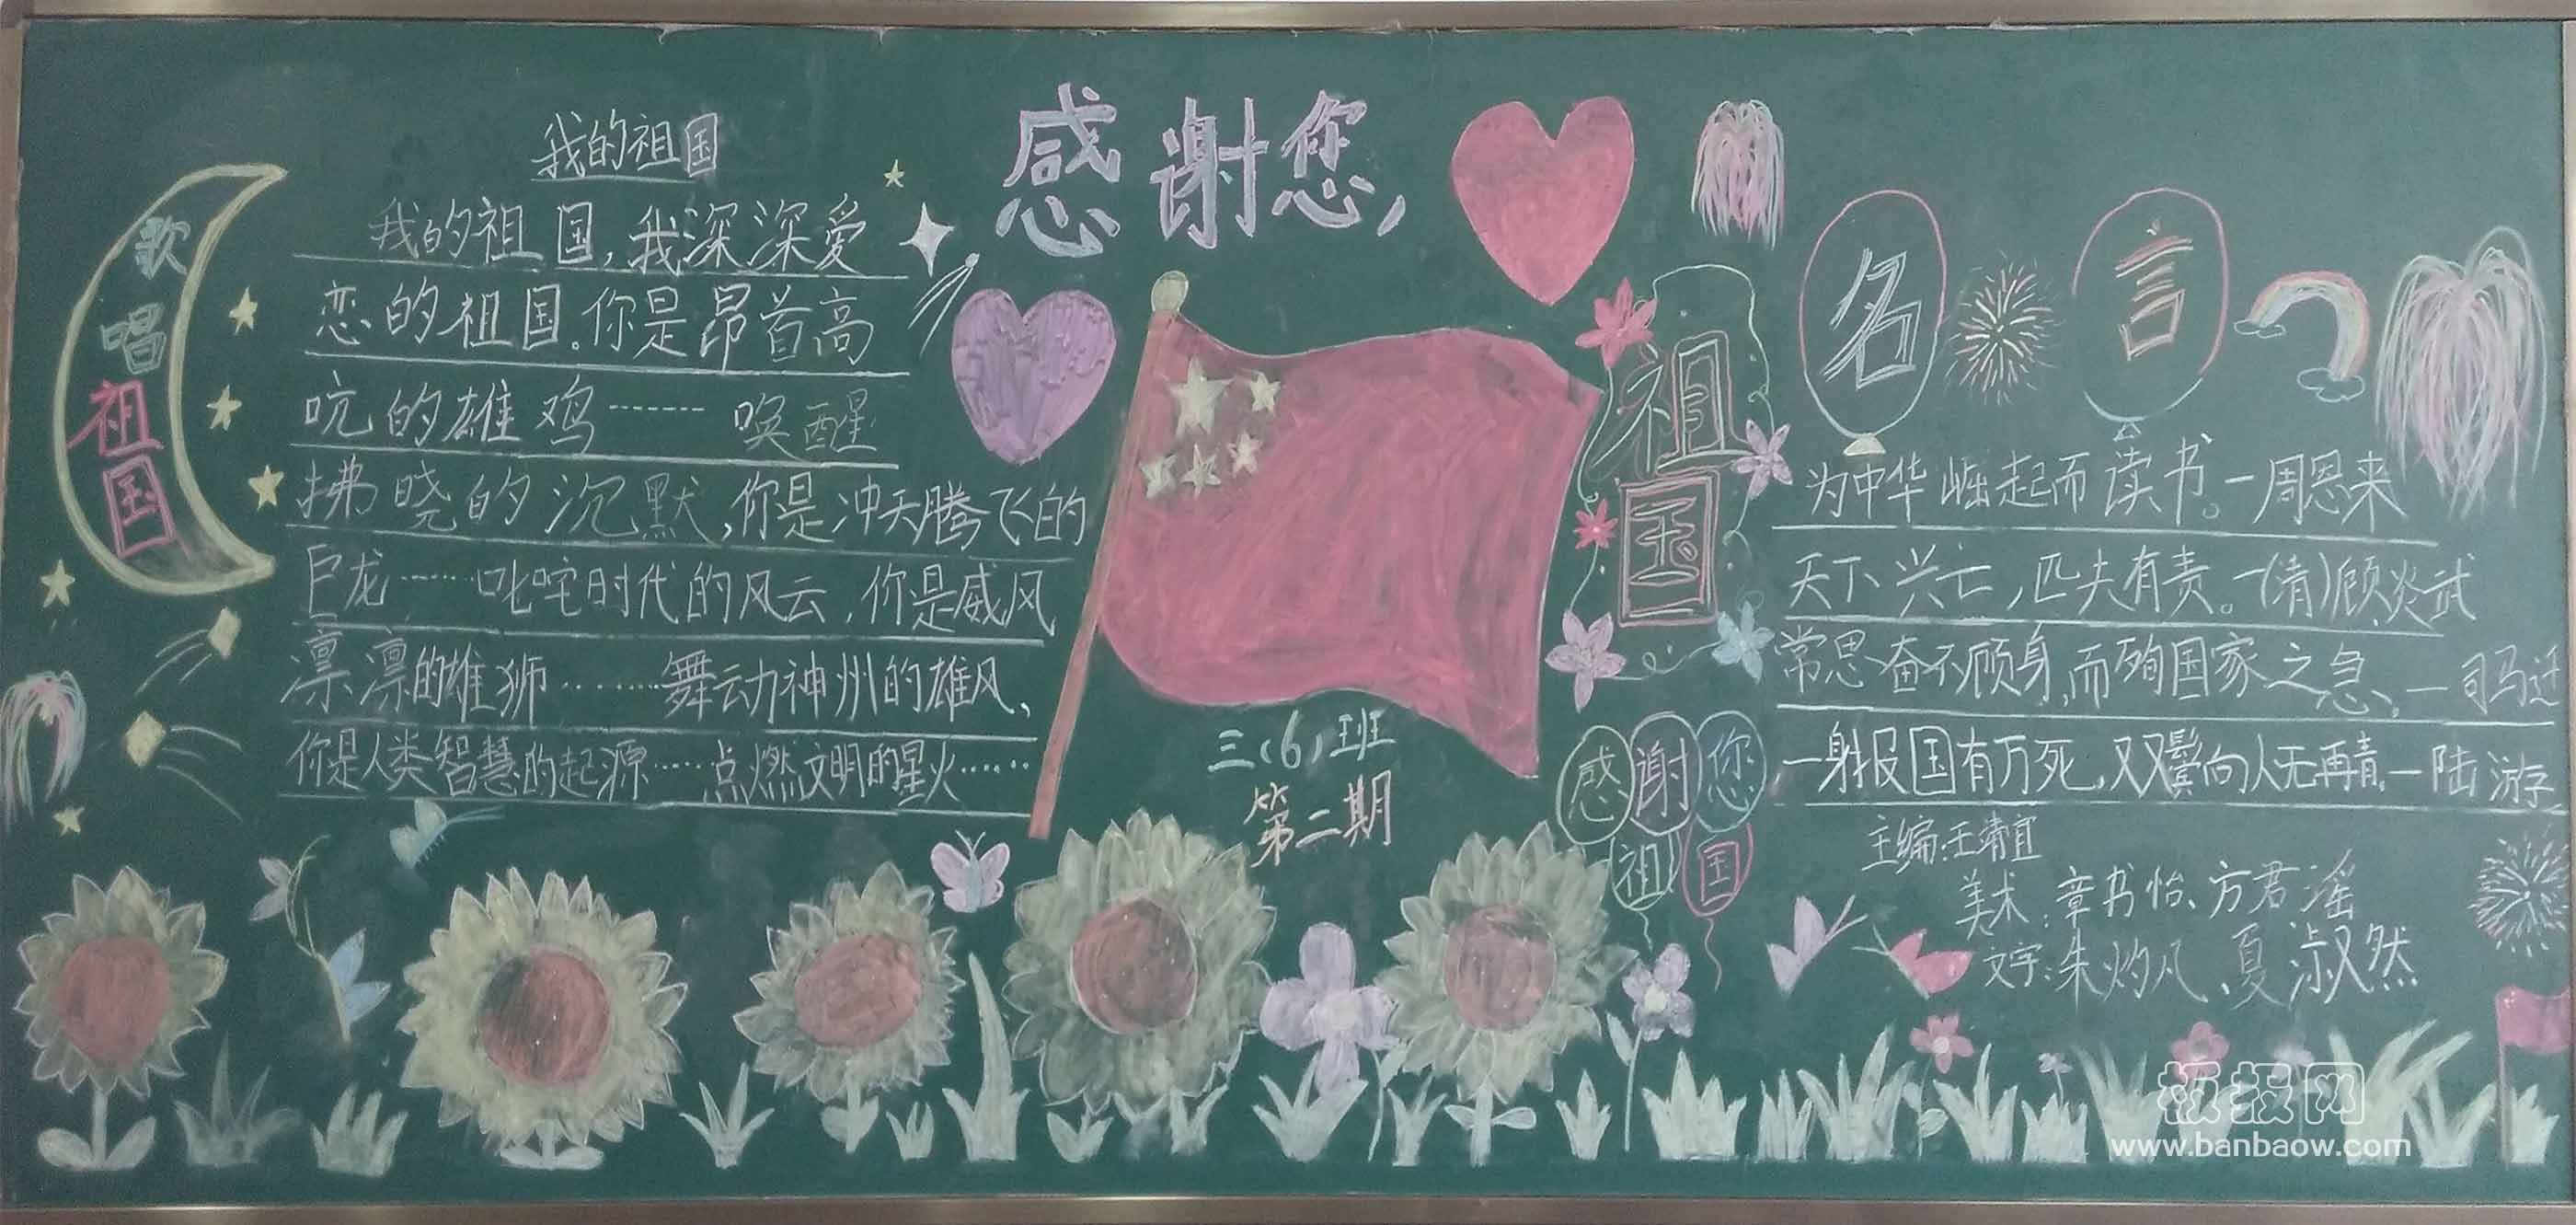 歌唱祖国
我的祖国
我的祖国,我深深爱
恋的祖国。你是昂首高
吭的雄鸡……唤醒
拂晓的沉默,你是冲天腾飞的
巨龙……叱咤时代的风云,你是威风
凛凛的雄狮……舞动神州的雄风、
你是人类智慧的起源……点燃文明的星火……
感谢您,
祖国
三(6)班
第二期
感谢您
祖国
名言
为中华崛起而读书。—周恩来
天下兴亡,匹夫有责。—(清)顾炎武
常思奋不顾身,而殉国家之急、—司马迁
一身报国有万死,双鬓向人无再青.—陆游
主编:王靖宜
美术:章书怡、方君瑶
文字:朱灼凡、夏淑然
板报网
www.banbaow.com